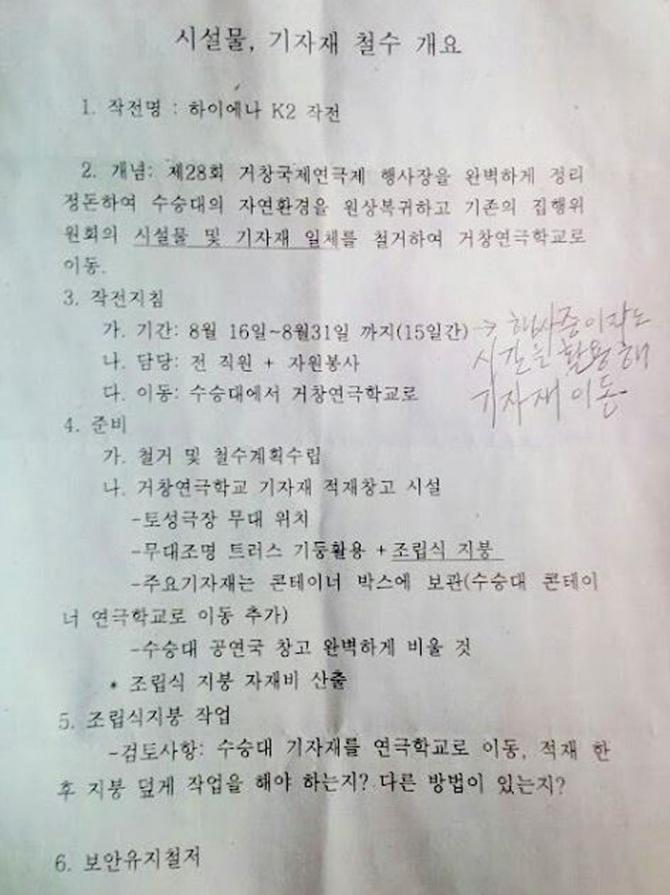 시설물, 기자재 철수 개요
1. 작전명 : 하이에나 K2 작전
2. 개념: 제28회 거창국제연극제 행사장을 완벽하게 정리
정돈하여 수승대의 자연환경을 원상복귀하고 기존의 집행위
원회의 시설물 및 기자재 일체를 철거하여 거창연극학교로
이동.
3. 작전지침
가. 기간: 8월 16일~8월31일 까지(15일간) → 행사중이라도
나. 담당: 전 직원 + 자원봉사 시간을 활용해
다. 이동: 수승대에서 거창연극학교로 기자재 이동
4. 준비
가. 철거 및 철수계획수립
나. 거창연극학교 기자재 적재창고 시설
-토성극장 무대 위치
-무대조명 트러스 기둥활용 +조립식 지붕
-주요기자재는 콘테이너 박스에 보관(수승대 콘테이
너 연극학교로 이동 추가)
-수승대 공연국 창고 완벽하게 비울 것
* 조립식 지붕 자재비 산출
5. 조립식지붕 작업
-검토사항: 수승대 기자재를 연극학교로 이동, 적재 한
후 지붕 덮게 작업을 해야 하는지? 다른 방법이 있는지?
6. 보안유지철저